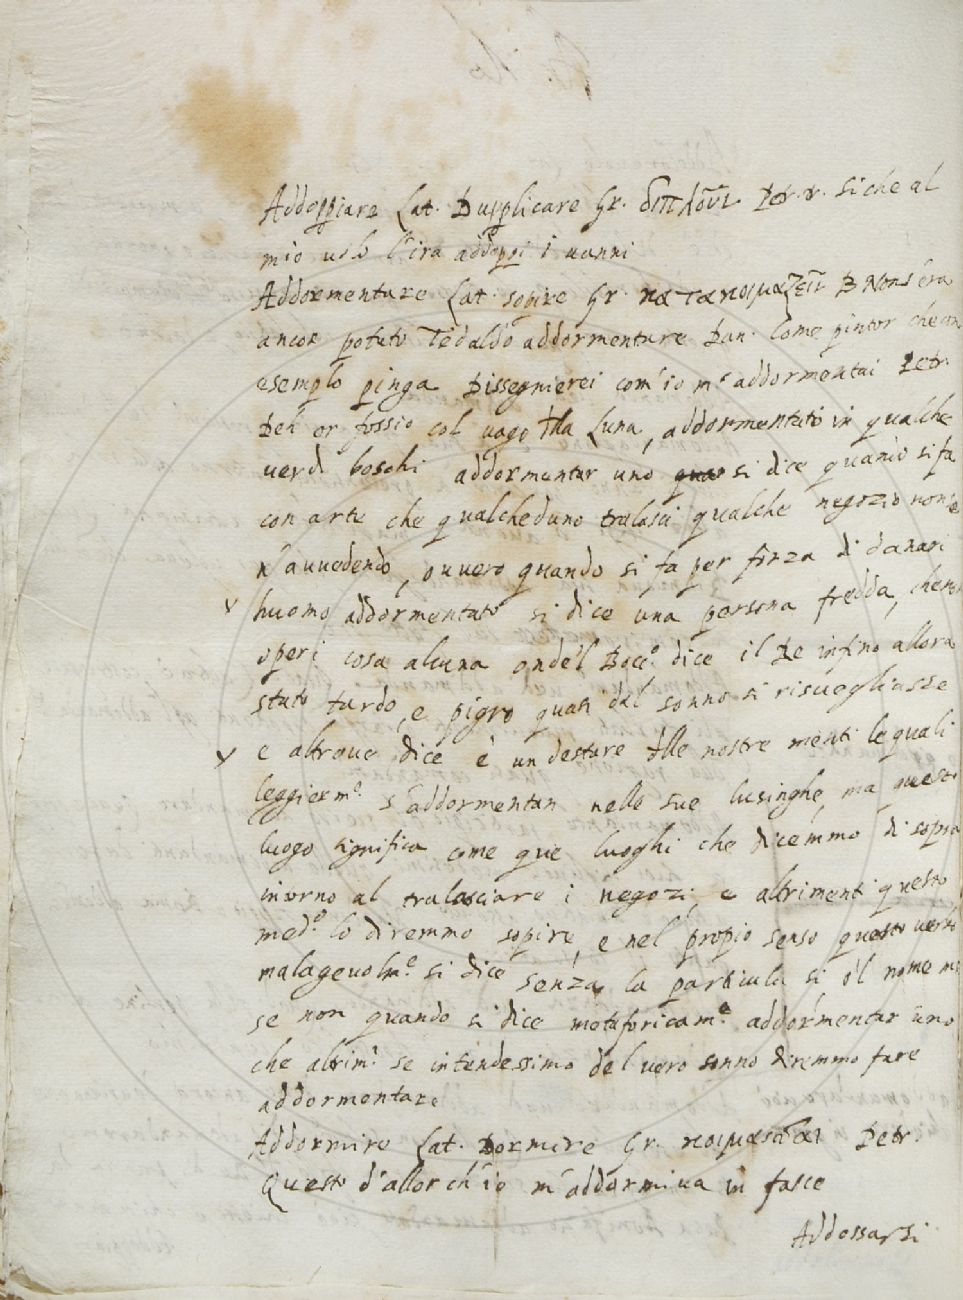 Addoppiare Lat. Dupplicare Gr. διπλοῦν Petr. r. siche al
mio volo l'ira addoppi i vanni
Addormentare Lat. sopire Gr. κατακοιμαζειν B Non s'era
ancor potuto Tedaldo addormentare Dan. Come pintor che con
esemplo pinga Dissegnierei com'io m'addormentai Petr.
Deh or foss'io col vago dlla Luna, addormentato in qualche
verdi boschi addormentar uno si dice quando si fa
con arte che qualcheduno tralasci qualche negozio non se
n'avvedendo, ovvero quando si fa per forza di danari
huomo addormentato si dice una persona fredda, che non
operi cosa alcuna onde'l Bocc.º dice il Re infino allora
stato tardo, e pigro quasi dal sonno si risvegliasse
e altrove dice è un destare dlle nostre menti le quali
leggierm.e s'addormentan nelle sue lusinghe, ma questo
luogo significa come que luoghi che dicemmo di sopra
intorno al tralasciare i negozi, e altrimenti questo
med.º lo diremmo sopire, e nel propio senso questo verbo
malagevolm.e si dice senza la particula si o'l nome me
se non quando si dice metaforicam.e addormentar uno
che altrim.i se intendessimo del vero sonno diremmo fare
addormentare
Addormire Lat. Dormire Gr. κοιμασθαι Petr.
Questo d'allor ch'io m'addormiva in fasce
Addossarsi